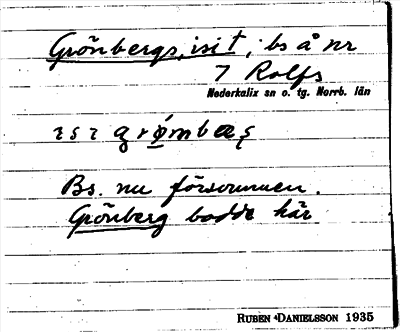 Grönbergs, isit, bs å nr
7 Rolfs
Nederkalix sn o. tg. Norrb. län
Bs. nu försvunnen.
Grönberg bodde här
RUBEN DANIELSSON 1935